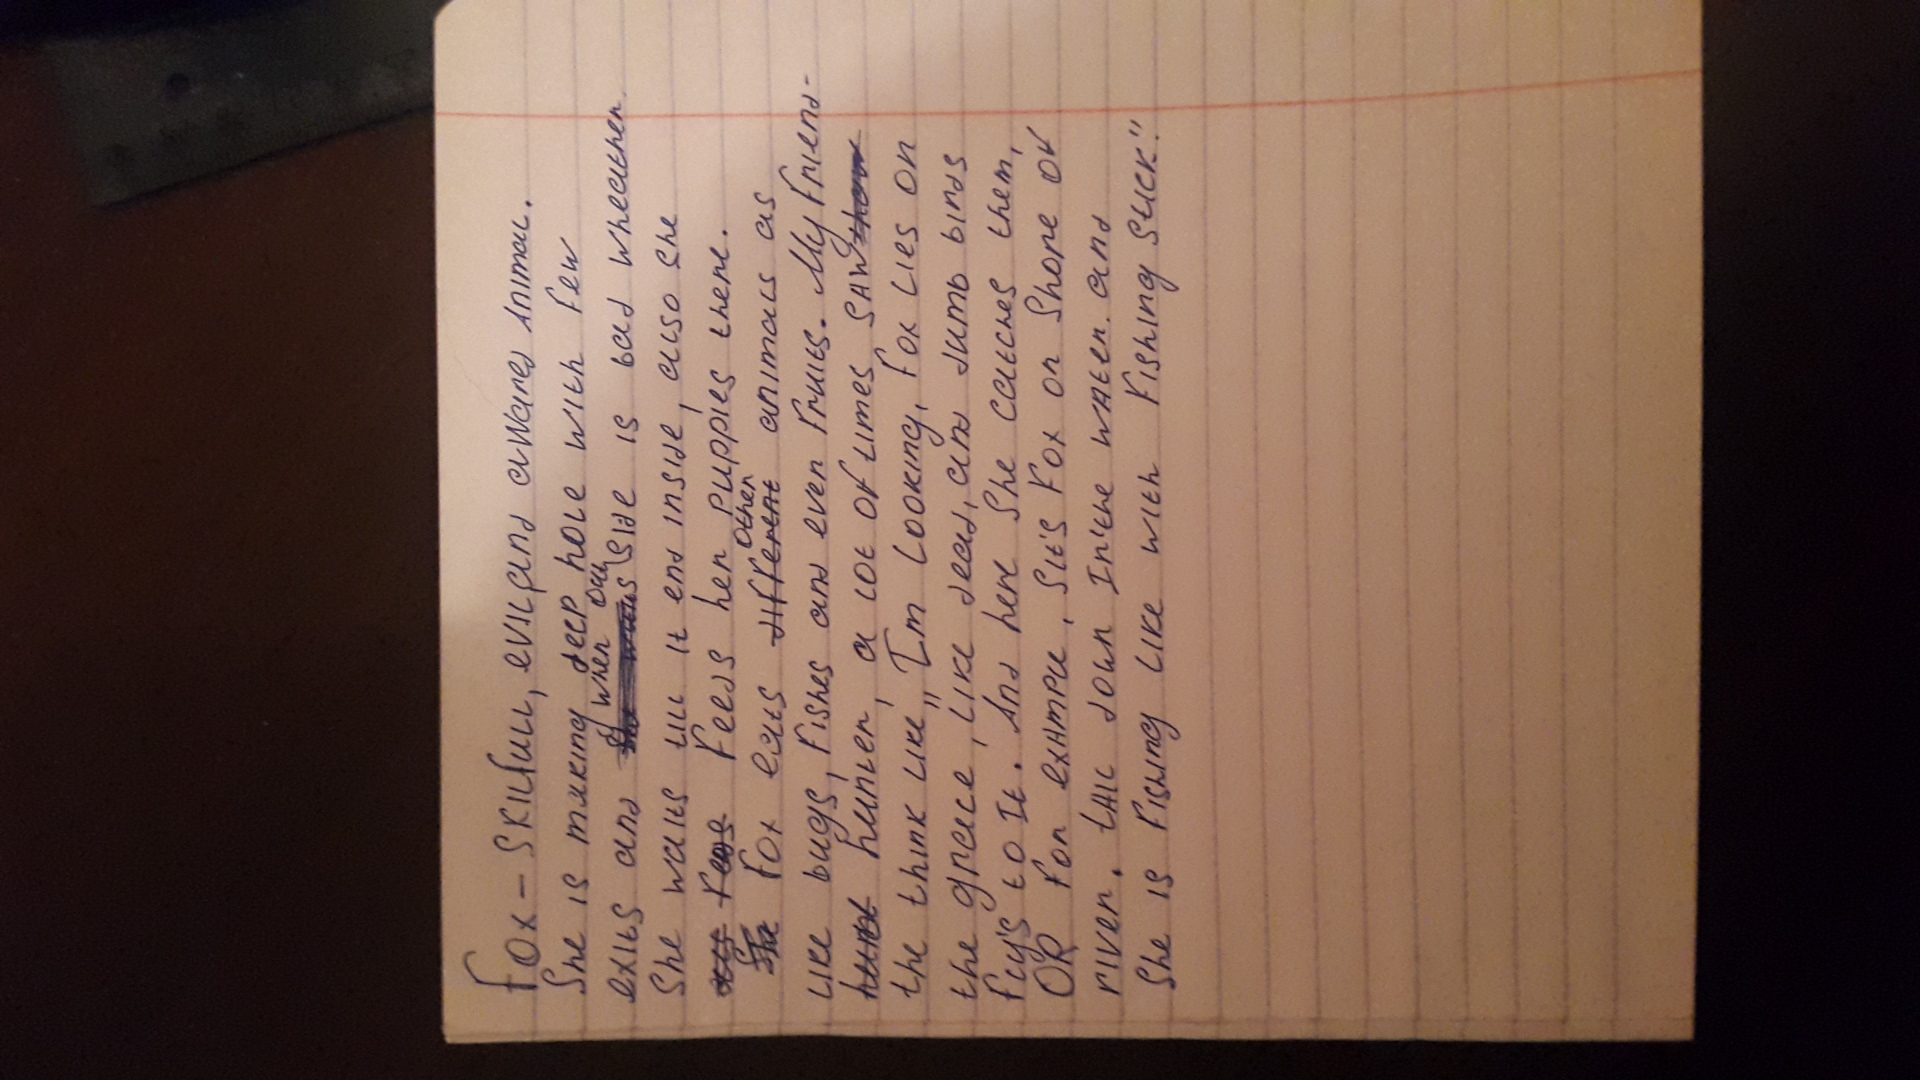 Fox - Skilfull, evil and awared animal.
She is making deep hole with few
exits and when out side is bad wheather.
She waits till it end inside, also she
feeds her puppies there.
Fox eats other animals as
like bugs, fishes and even fruits. My friend-
hunter, a lot of times saw
the think like „Im looking, fox lies on
the greece, like dead, and dumb birds
fly's to it. And here she catches them,
OR for example, sits fox on shore of
river. tail down In the water. and
She is fishing like with fishing stick."